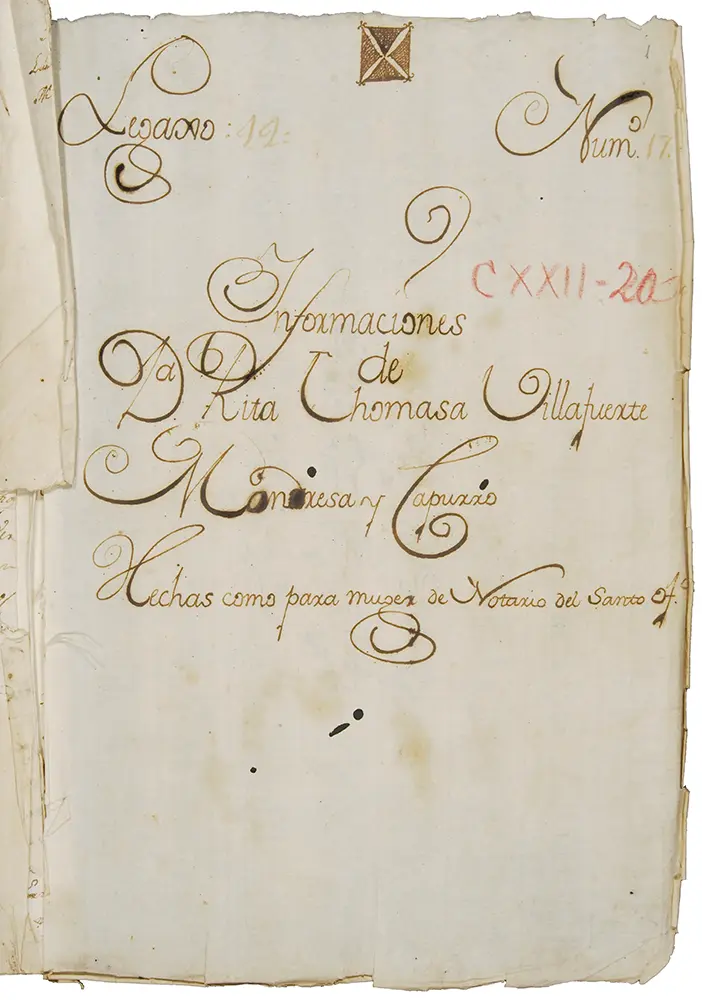 1
Legaxo: 44= Num.º 17.
CXXII-20
Informaciones
de
D.ª Rita Thomasa Villafuerte
Manrresa y Capurro
Hechas como para muger de Notario del Santo Of.º